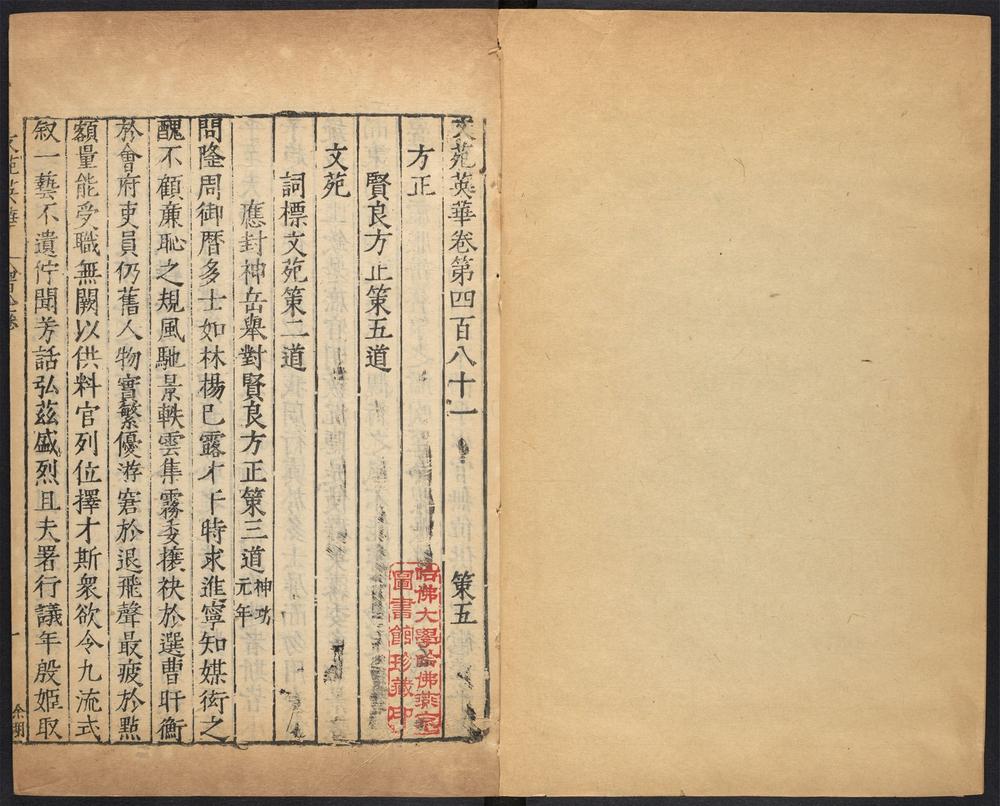 文苑英華卷第四百八十一 策五
方正
賢良方正策五道
文苑
詞標文苑策二道
應封神岳舉對賢良方正策三道神功元年
問隆周御曆多士如林楊已露才干時求進寧知媒衒之
醜不顧廉恥之規風馳景軼雲集霧委攘袂於選曹盱衡
於會府吏員仍舊人物實繁優游窘於退飛聲最疲於㸃
額量能受職無闕以供料官列位擇才斯衆欲令九流式
敘一藝不遺佇聞芳話弘茲盛烈且夫署行議年殷姬取
文苑英華
一
余朝
哈佛大學哈佛燕京
圖書館珍藏印